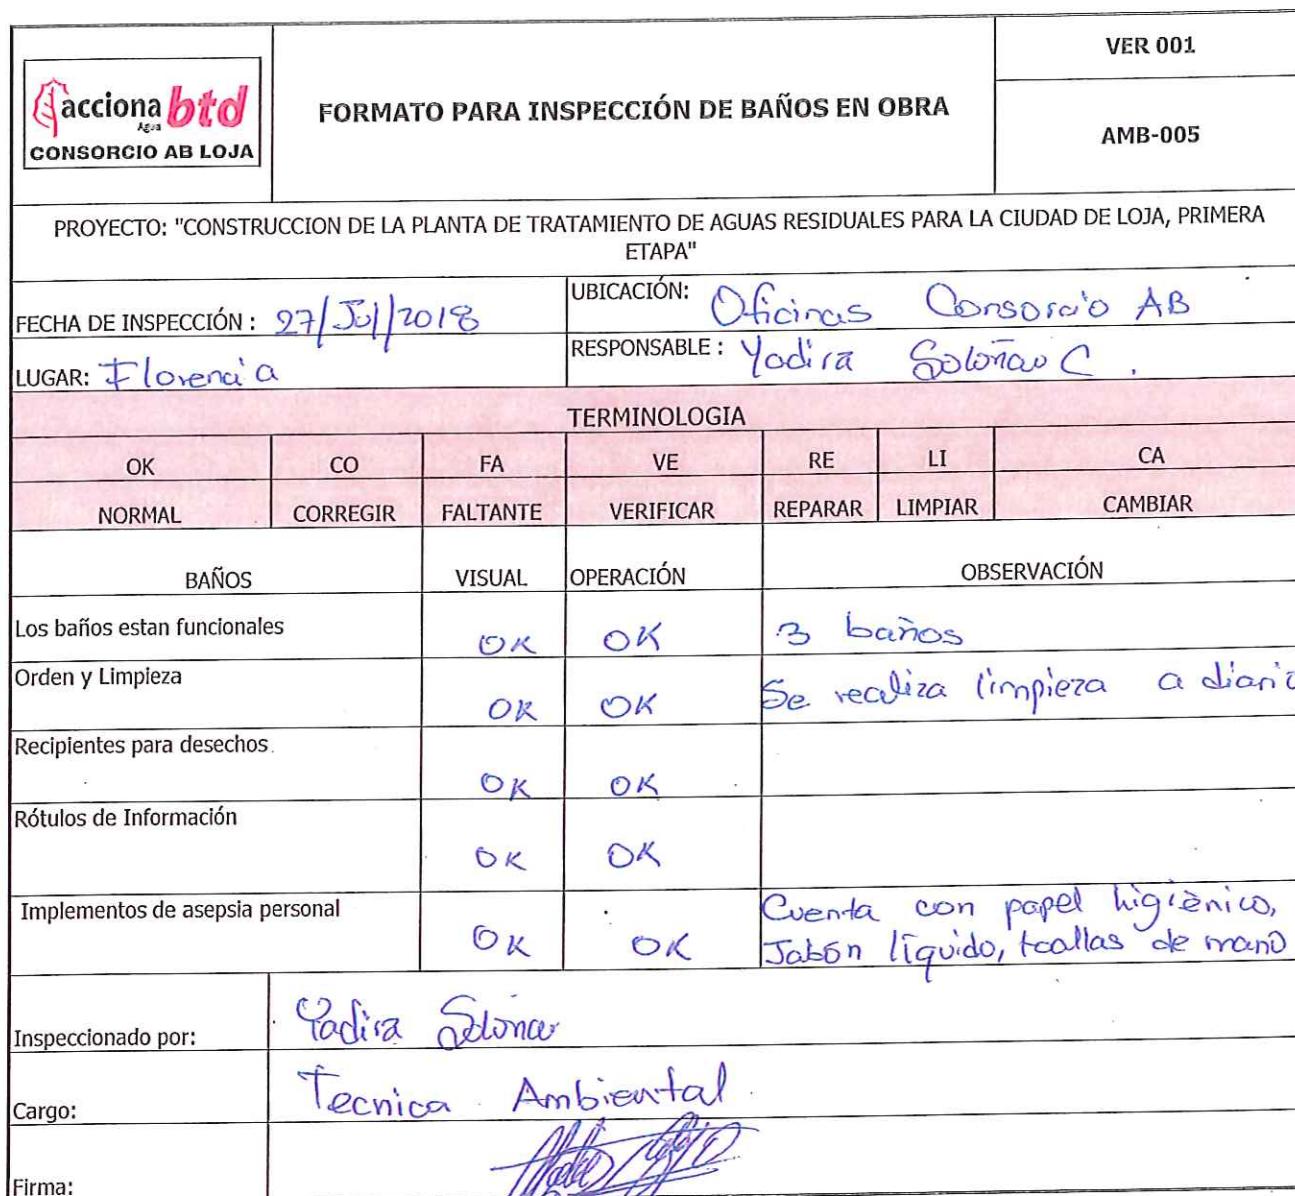 acciona btd
Agua
CONSORCIO AB LOJA
FORMATO PARA INSPECCIÓN DE BAÑOS EN OBRA
VER 001
AMB-005
PROYECTO: "CONSTRUCCION DE LA PLANTA DE TRATAMIENTO DE AGUAS RESIDUALES PARA LA CIUDAD DE LOJA, PRIMERA
ETAPA"
FECHA DE INSPECCIÓN : 27/Jul/2018
UBICACIÓN: Oficinas Consorcio AB
LUGAR: Florencia
RESPONSABLE : Yadira C.
TERMINOLOGIA
OK CO FA VE RE LI CA
NORMAL CORREGIR FALTANTE VERIFICAR REPARAR LIMPIAR CAMBIAR
BAÑOS VISUAL OPERACIÓN OBSERVACIÓN
Los baños estan funcionales OK OK 3 baños
Orden y Limpieza OK OK Se realiza limpieza a diario
Recipientes para desechos OK OK
Rótulos de Información OK OK
Implementos de asepsia personal OK OK Cuenta con papel higiénico,
Jabón líquido, toallas de mano
Inspeccionado por: Yadira
Cargo: Tecnica Ambiental
Firma: